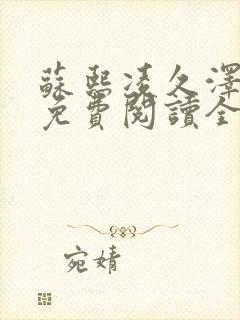 蘇熙凌久澤
免費閱讀全
宛婧